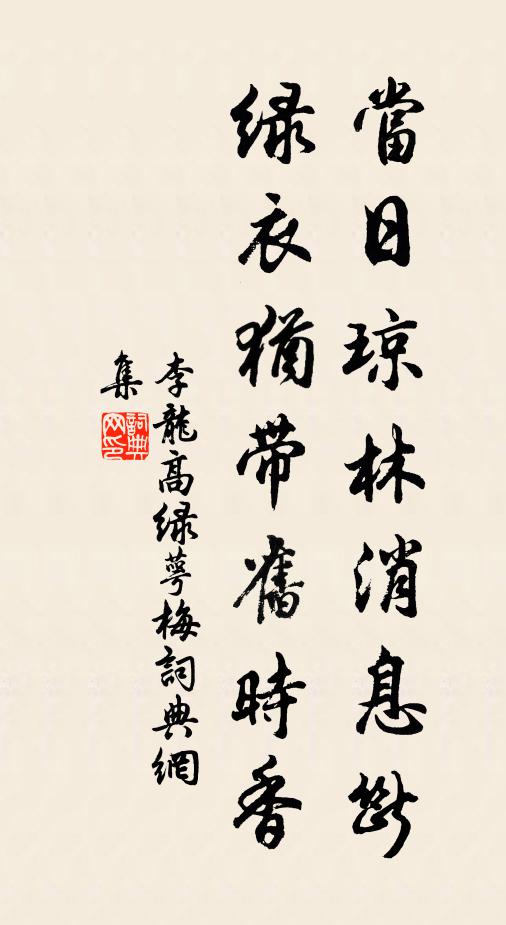 當日琼林消息斷
緑衣猶帶舊時香
李龍高緑萼梅詞典網
集
詞典网印